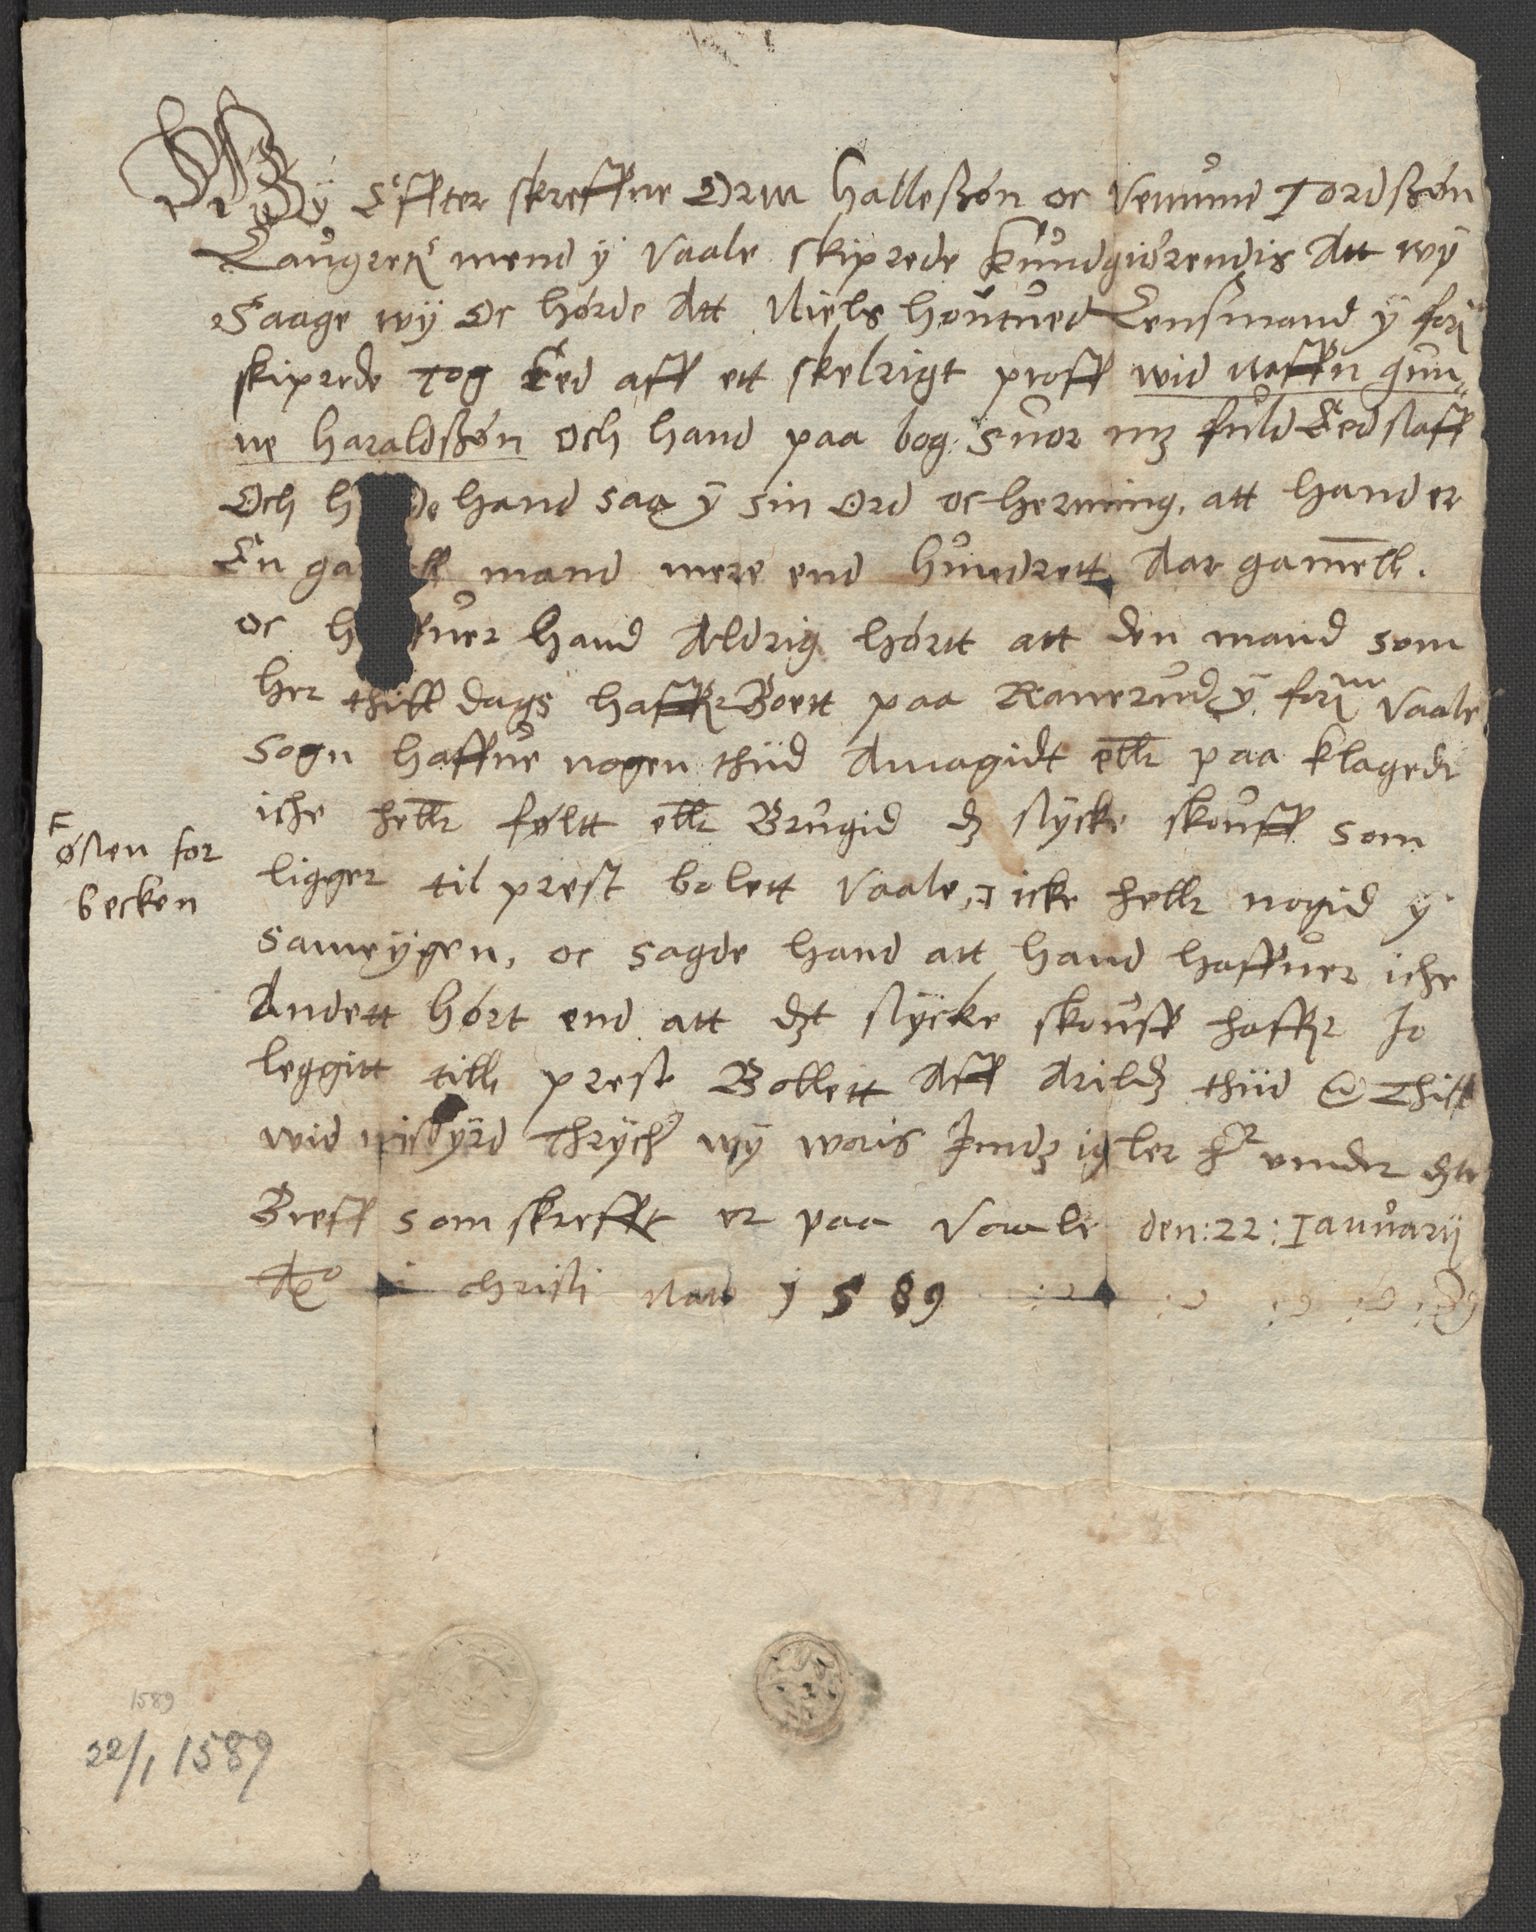 Wÿ Effter skreffne Orm Halleßón oc Vemund Tordßón
Laugrett mend ÿ Vaale skiprede kundgiórendis Att wÿ
Saage wÿ Oc hórde Att Niels houtued Lensmand ÿ for:
skiprede Tog Eed aff ett skelrigt proff wid naffn gun„
ne haraldßón Och hand paa bog suor mz fuld Eed staff
Och h de hand saa ÿ sin Ord oc herming. att hand er
En ga ll mand mere end hundrett Aar gamell.
oc h ffuer hand Aldrig hórtt att den mand som
her thill dags haffr Boett paa Ranerud ÿ for: Vaale
sogn haffue nogen thiid Amagidt ellr paa klagedt
iche hellr føltt ellr Brugid dz stÿcke skouff som
ligger til prest bolett Vaale, F icke hellr nogid ÿ
sameÿgen, oc sagde hand att hand haffuer iche
Andett hórt end att dzt stÿcke skouff haffr Jo
leggitt till prest Bollett Aff Arildz thiid Thill
wid ÿrd Thrÿche wÿ woris Jndzigler her under dzte
Breff som skrefft er paa Vaale den: 22: Januarij
A° christi 1589
F østen for
becken
1589
22/1 1589